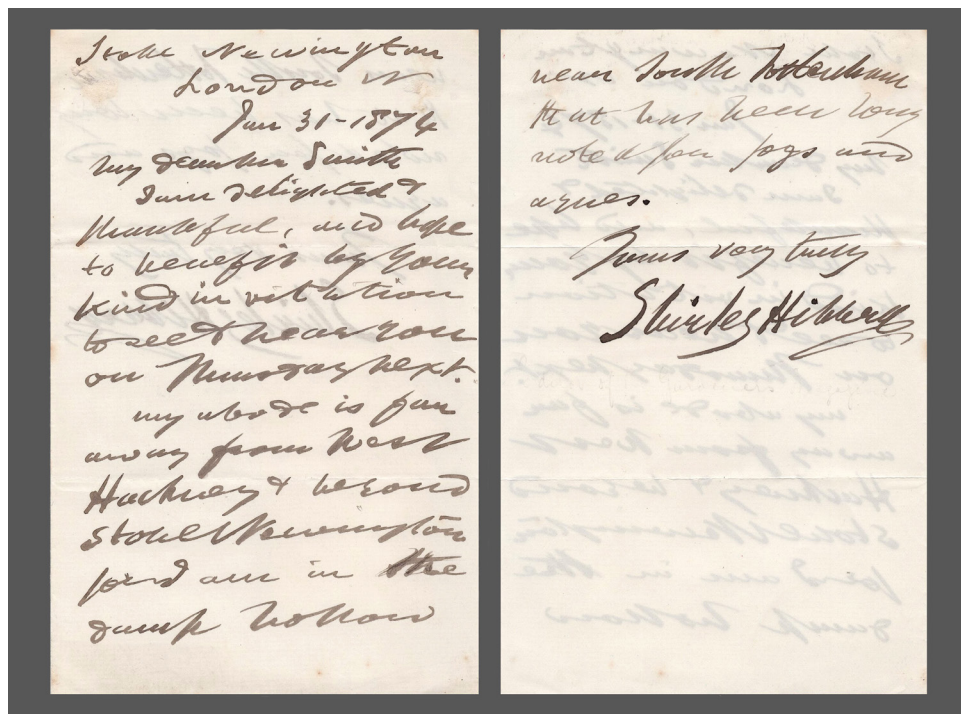 Stoke Newington
London N
Jan 31-1874
My dear Mr Smith
I am delighted &
thankful, and hope
to benefit by your
kind invitation
to see & hear you
on Thursday next.
My abode is far
away from West
Hackney & beyond
Stoke Newington
and am in the
damp hollow
near South Tottenham
that has been long
noted for fogs and
agues.
Yours very truly
Shirley Hibberd